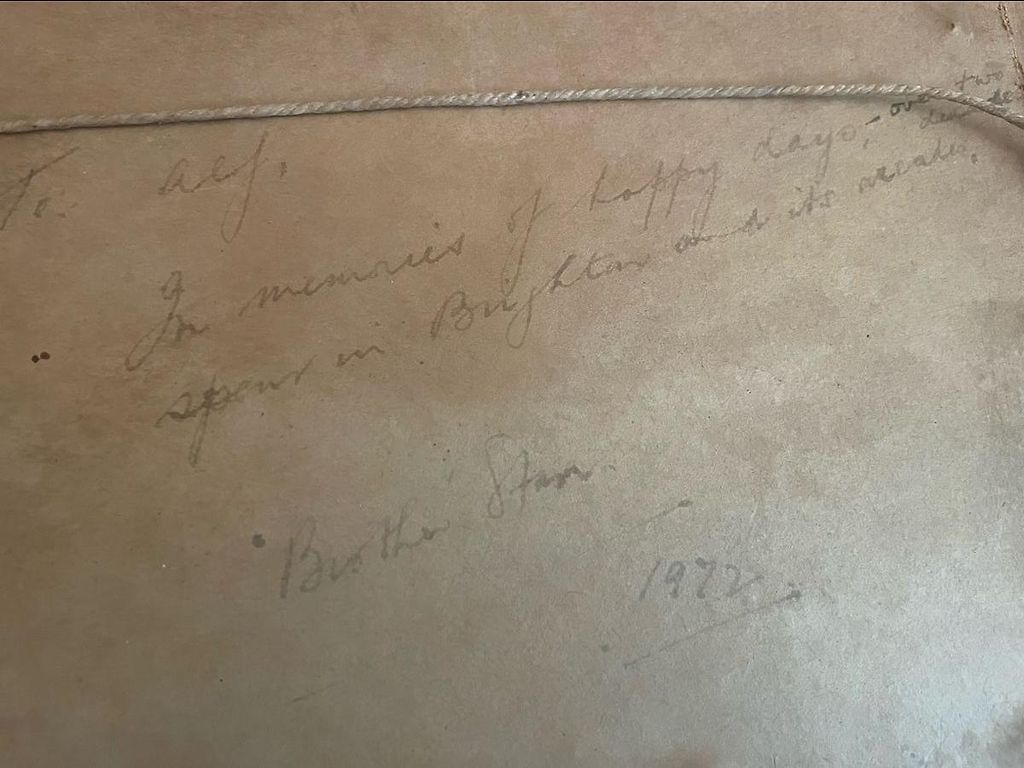 To: Alf,
In memories of happy days, - over two decades
spent in Brighton and its arcades.
Brother Stan.
1972.